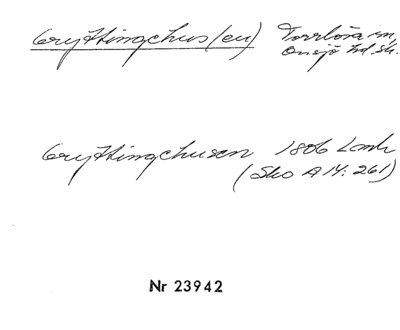 Gryttingehus(en) Torrlösa sn,
Onsjö hd Sk.
Gryttingehusen 1806 Lmh
(Sko A 14: 261)
Nr 23942